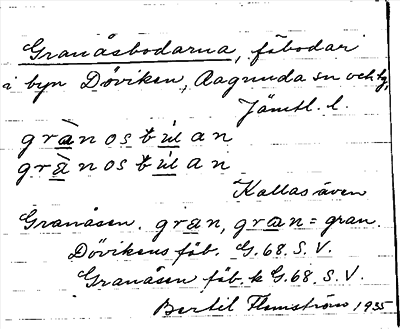 Granåsbodarna, fäbodar
i byn Döviken, Ragunda sn och tg,
Jämtl. l.
grànostùlan
grànostùlan
Kallas även
Granåsen. gran, gran = gran.
Dövikens fäb. G. 68. S. V.
Granåsen fäb. k G. 68. S. V.
Bertil Flemström 1935